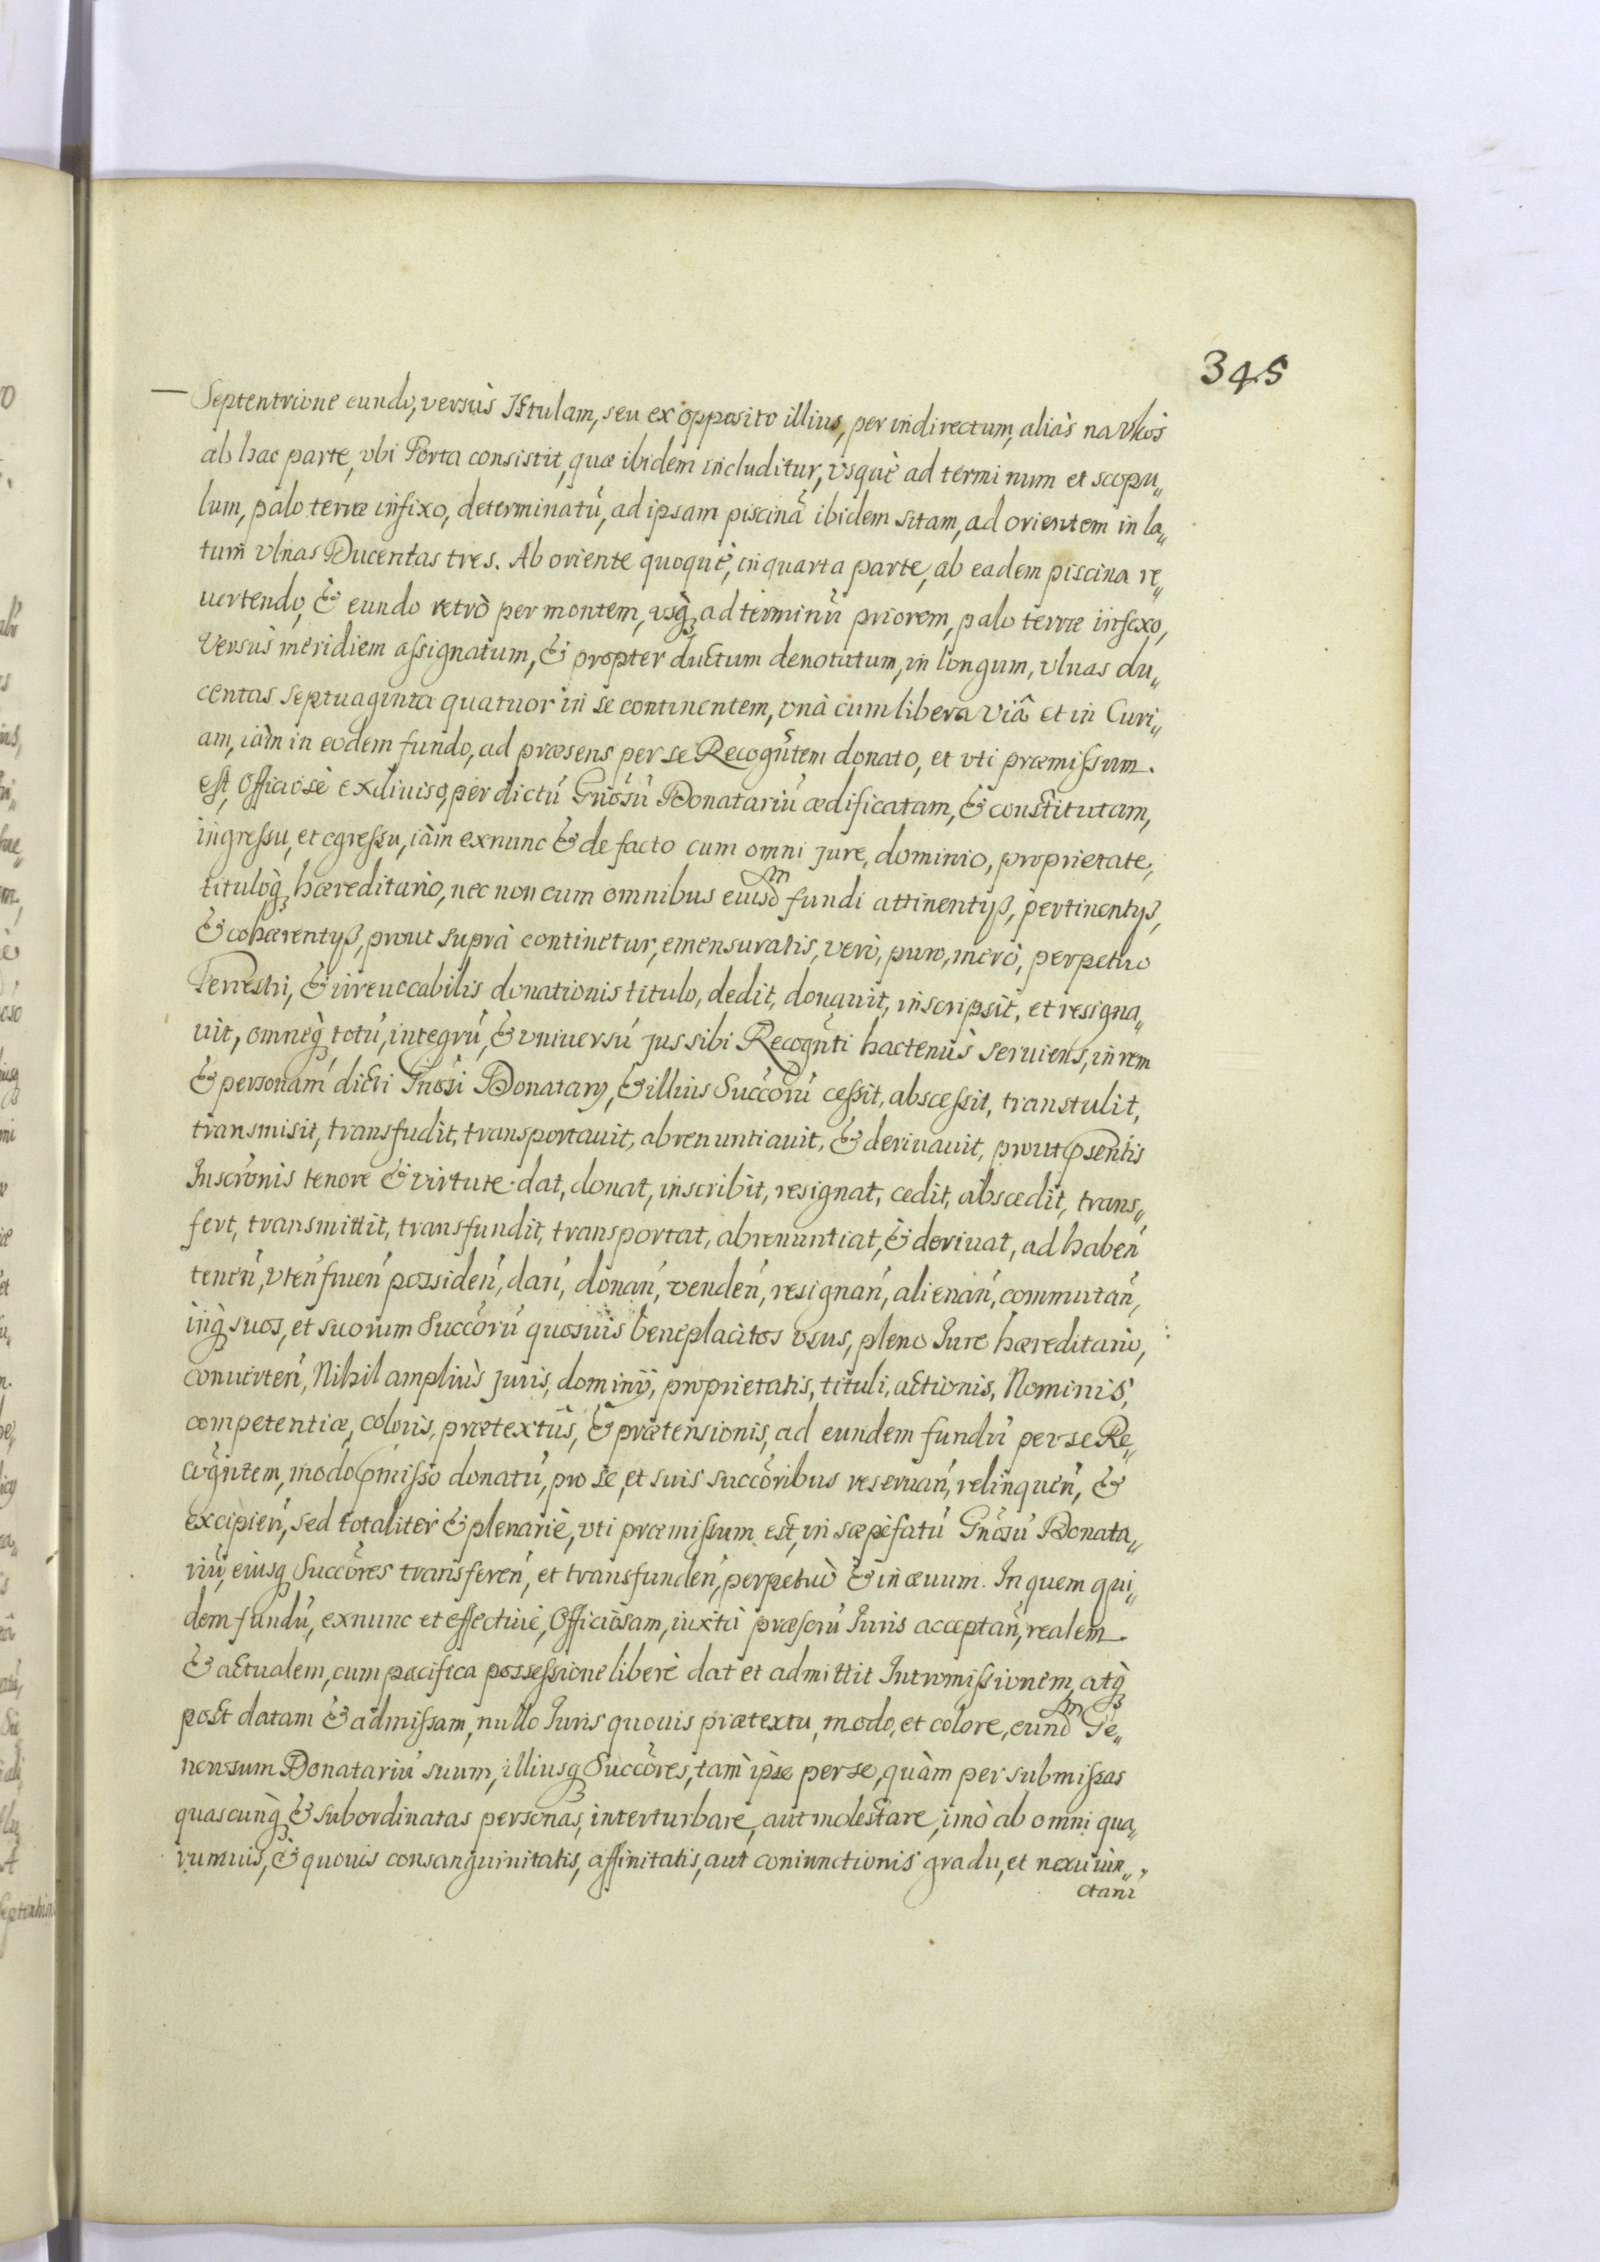 345
— Septentrione eundo, versùs Istulam, seu ex opposito illius, per indirectum, aliàs na Vkos
ab hac parte, vbi Porta consistit, quæ ibidem includitur, vsquè ad terminum et scopu„
lum, palo terræ infixo, determinatũ, ad ipsam piscinã ibidem sitam, ad orientem in la„
tum vlnas Ducentas tres. Ab oriente quoquè, in quarta parte, ab eadem piscina re„
uertendo, & eundo retrò per montem, vsq̀ꝫ ad terminũ priorem, palo terræ infixo,
versùs meridiem assignatum, & propter ductum denotatum, in longum, vlnas du„
centas septuaginta quatuor in se continentem, vnà cum libera viâ et in Curi„
am, iàm in eodem fundo, ad præsens per se Recognt̃em donato, et vti præmissum.
est, Officiosè exdiuiso, per dictũ Gñosũ Donatariũ ædificatam, & constitutam,
ingressu, et egressu, iàm exnunc & de facto cum omni jure, dominio, proprietate,
tituloq̀ꝫ hæreditario, nec non cum omnibus eiusdm fundi attinentÿs, pertinentÿs,
& cohærentÿs, prout suprà continetur, emensuratis, verò, puro, merò, perpetuo
Terrestri, & irreuocabilis donationis titulo, dedit, donauit, inscripsit, et resigna„
uit, omneq̀ꝫ totũ, integrũ, & vniuersũ jus sibi Recognt̃i hactenùs seruiens, in rem
& personam dicti Gñosi Donatarÿ, & illius Succõrũ cessit, abscessit, transtulit,
transmisit, transfudit, transportauit, abrenuntiauit, & deriuauit, prout p̃sentis
Inscrõnis tenore & virtute dat, donat, inscribit, resignat, cedit, abscedit, trans„
fert, transmittit, transfundit, transportat, abrenuntiat, & deriuat, ad habeñ
teneñ, vteñ frueñ possideñ, dañ, donañ, vendeñ, resignañ, alienañ, commutañ,
inq̀ꝫ suos, et suorum Succõrũ quosuis beneplacitos vsus, pleno Iure hæreditario,
conuerteñ, Nihil ampliùs juris, dominÿ, proprietatis, tituli, actionis, Nominis,
competentiæ, coloris, prætextûs, & prætensionis, ad eundem fundũ per se Re„
cognt̃em, modo p̃misso donatũ, pro se, et suis succõribus reseruañ, relinqueñ, &
excipieñ, sed totaliter & plenariè, vti præmissum est, in sæpèfatũ Gñosũ Donata„
riũ, eiusqꝫ Succõres transfereñ, et transfundeñ, perpetuò & in æuum. In quem qui„
dem fundũ, exnunc et effectiuè, Officiosam, iuxtà præscrũ Iuris acceptañ, realem
& actualem, cum pacifica possessione liberè dat et admittit Intromissionem, atq̀ꝫ
post datam & admissam, nullo Iuris quouis prætextu, modo, et colore, eundm Ge„
nerosum Donatariũ suum, illiusqꝫ Succõres, tam ipse per se, quàm per submissas
quascunq̀ꝫ & subordinatas personas, interturbare, aut molestare, imò ab omni qua„
rumuis, & quouis consanguinitatis, affinitatis, aut coniunctionis gradu, et nexu iun„
ctarũ